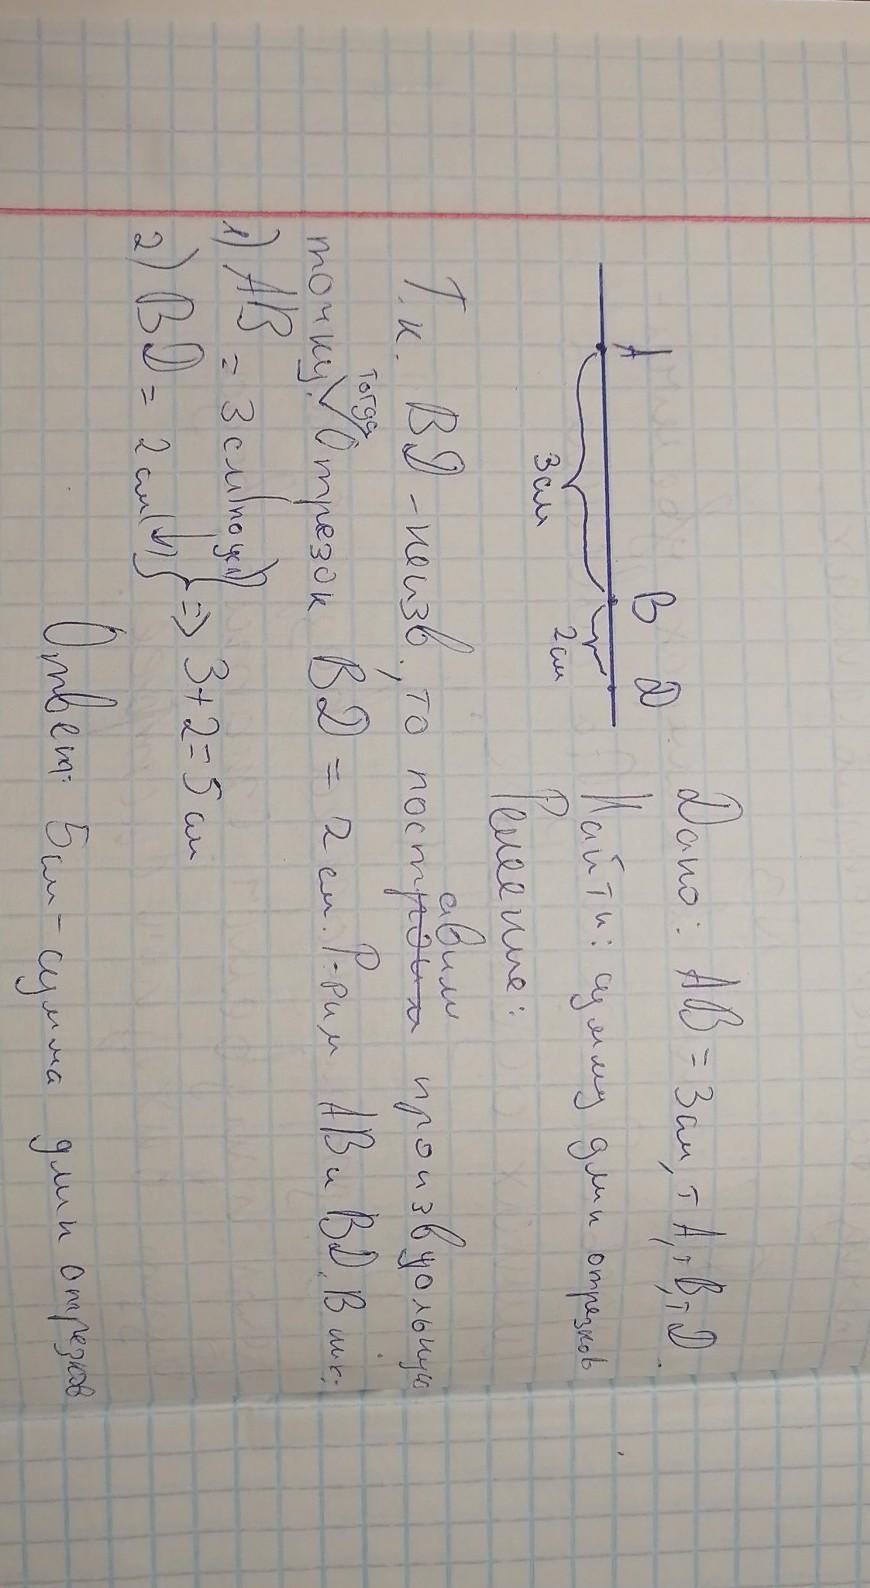 A B D
3 см 2 см
Дано: AB = 3 см, т A, т B, т D.
Найти: сумму длин отрезков
Решение:
Т.к. BD - неизв., то поставим произвольную
точку. Тогда Отрезок BD = 2 см. Р-рим AB и BD. В них:
1) AB = 3 см (по усл)
2) BD = 2 см ( ) } => 3+2=5 см
Ответ: 5 см - сумма длин отрезков